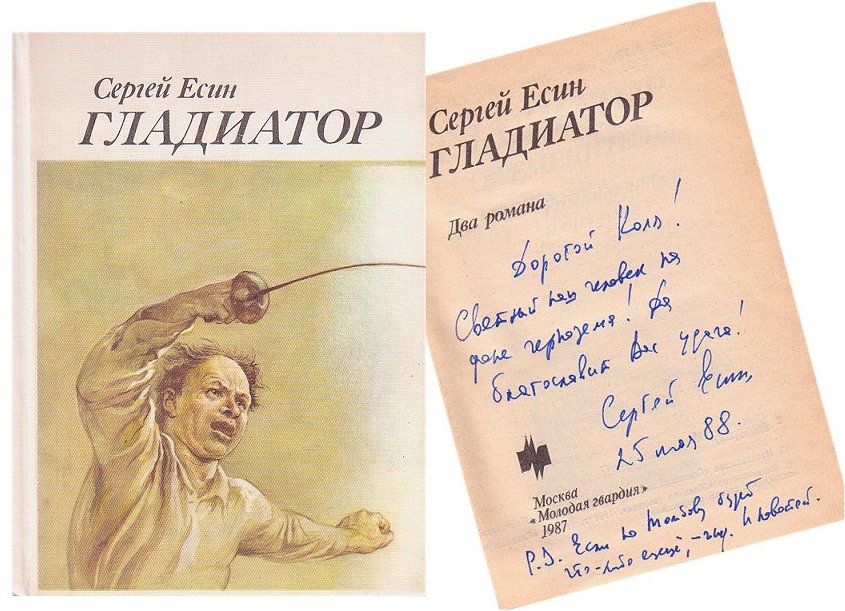 Сергей Есин
ГЛАДИАТОР
Сергей Есин
ГЛАДИАТОР
Два романа
Дорогой Коля!
Светлый наш человек на
фоне чернозема! Да
благославит Вас удача!
Сергей Есин
25 мая 88.
Москва
«Молодая гвардия»
1987
P.S. Если по Тамбову будет
что-либо ещё, –